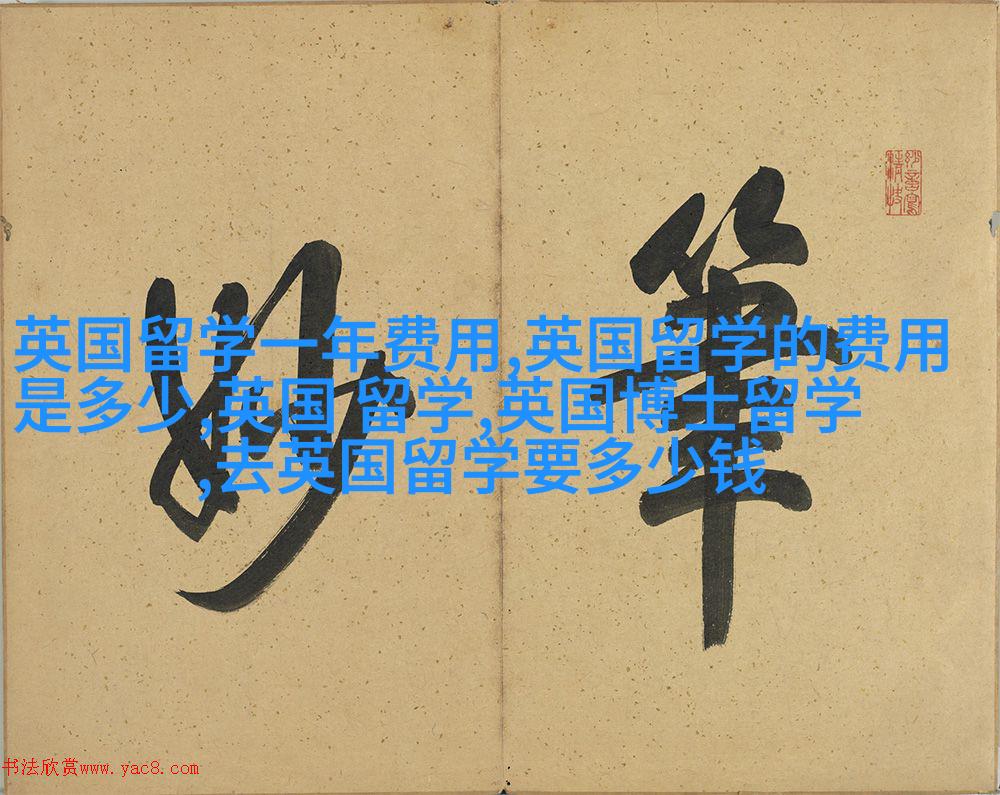 筆
妙
英国留学一年费用,英国留学的费用
是多少,英国 留学,英国博士留学
,去英国留学要多少钱
书法欣赏www.yac8.com